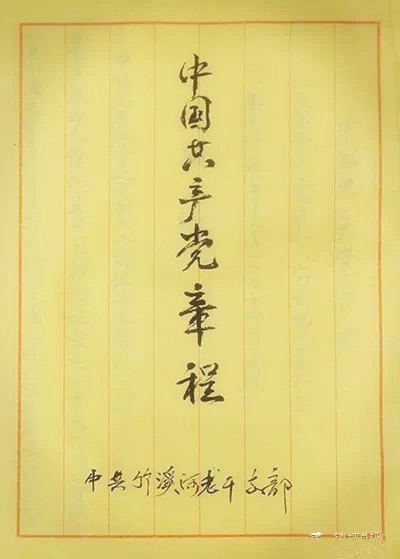 中国共产党章程
中共竹溪河老干支部